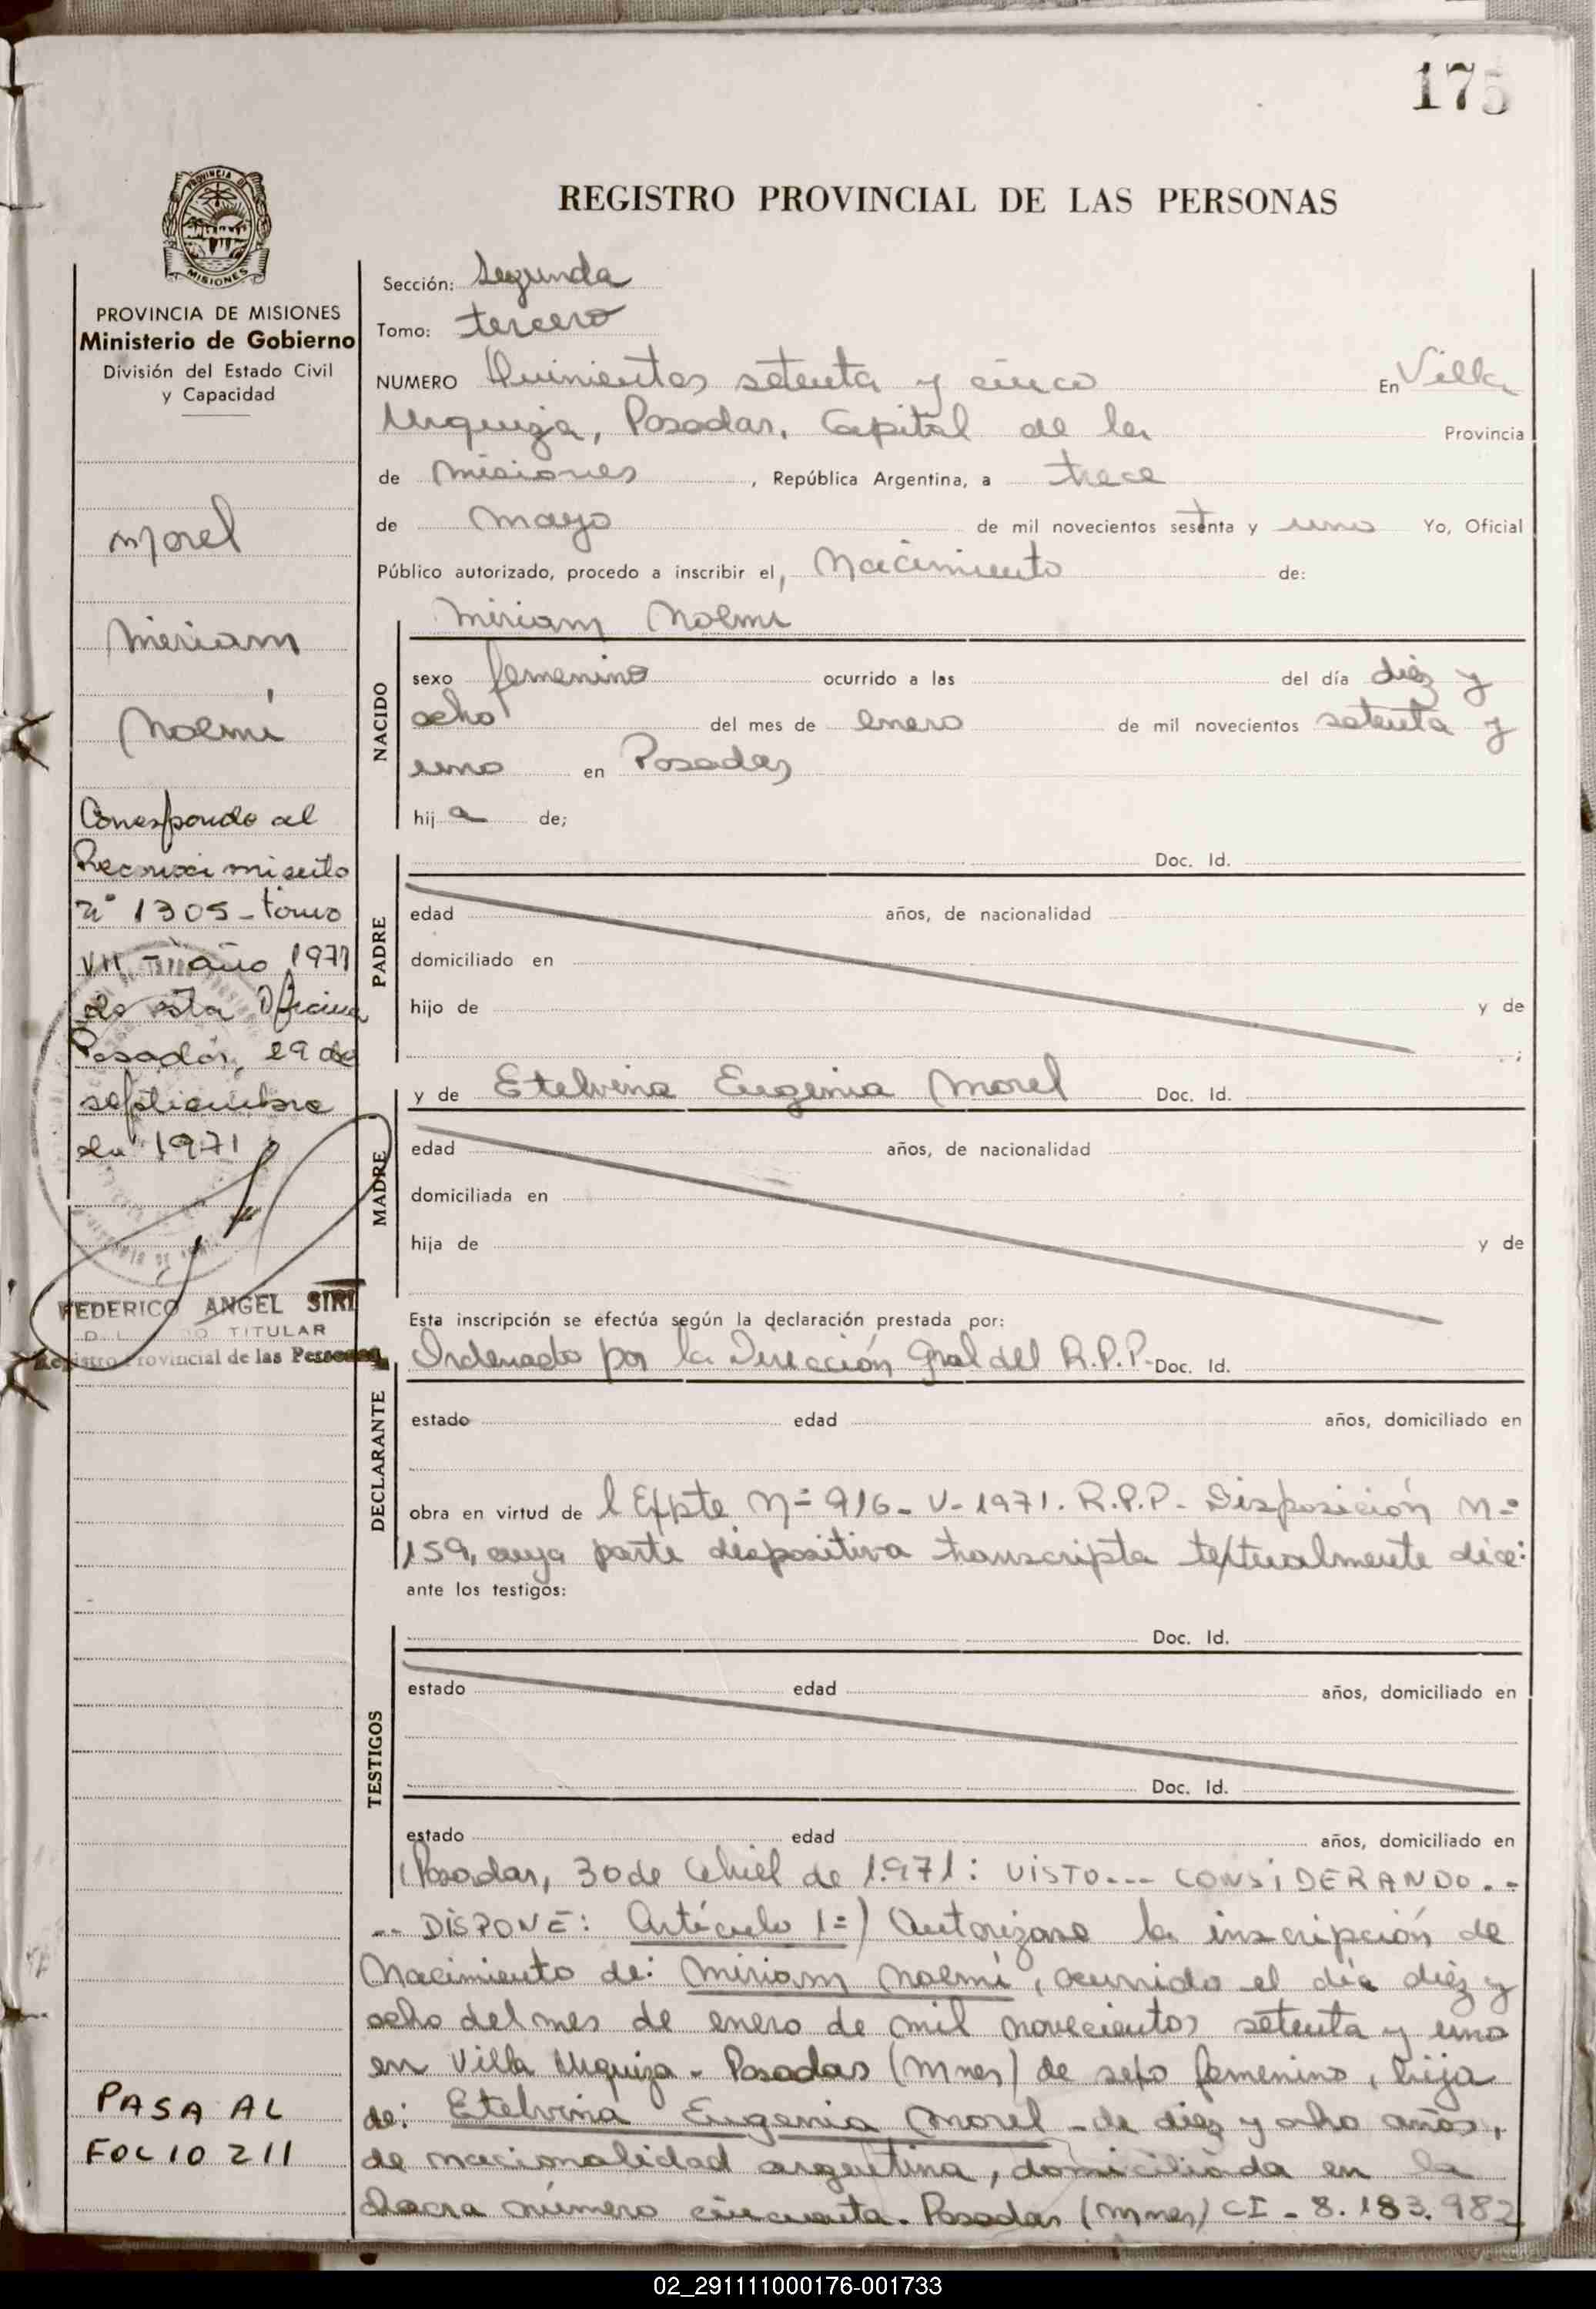 175
PROVINCIA DE
MISIONES
PROVINCIA DE MISIONES
Ministerio de Gobierno
División del Estado Civil
y Capacidad
Morel
Miriam
Noemí
Corresponde al
Reconocimiento
nº 1305 - tomo
VII - año 1971
de esta Oficina
Posadas, 29 de
septiembre
de 1971
FEDERICO ANGEL SIRI
TITULAR
Registro Provincial de las Personas
PASA AL
FOLIO 211
REGISTRO PROVINCIAL DE LAS PERSONAS
Sección: Segunda
Tomo: tercero
NUMERO Quinientos setenta y cinco En Villa
Urquiza, Posadas, Capital de la Provincia
de Misiones, República Argentina, a trece
de Mayo de mil novecientos sesenta y uno Yo, Oficial
Público autorizado, procedo a inscribir el, Nacimiento de:
NACIDO
Miriam Noemi
sexo femenino ocurrido a las del día diéz y
ocho del mes de enero de mil novecientos setenta y
uno en Posadas
hij a de;
PADRE
Doc. Id.
edad años, de nacionalidad
domiciliado en
hijo de y de
;
MADRE
y de Etelvina Eugenia Morel Doc. Id.
edad años, de nacionalidad
domiciliada en
hija de y de
Esta inscripción se efectúa según la declaración prestada por:
DECLARANTE
Ordenado por la Dirección Gral del R.P.P. Doc. Id.
estado edad años, domiciliado en
obra en virtud de l Expte Nº 916 - V - 1971. R.P.P. - Disposición Nº
159, cuya parte dispositiva transcripta textualmente dice:
ante los testigos:
TESTIGOS
Doc. Id.
estado edad años, domiciliado en
Doc. Id.
estado edad años, domiciliado en
Posadas, 30 de Abril de 1.971: VISTO... CONSIDERANDO..
.. DISPONE: Artículo 1º) Autorízase la inscripción de
Nacimiento de: Miriam Noemí, ocurrido el día diéz y
ocho del mes de enero de mil novecientos setenta y uno
en Villa Urquiza - Posadas (Mnes) de sexo femenino, hija
de: Etelvina Eugenia Morel - de diez y ocho años,
de nacionalidad argentina, domiciliada en la
chacra número cincuenta. Posadas (Mnes) CI - 8.183.982
02_291111000176-001733